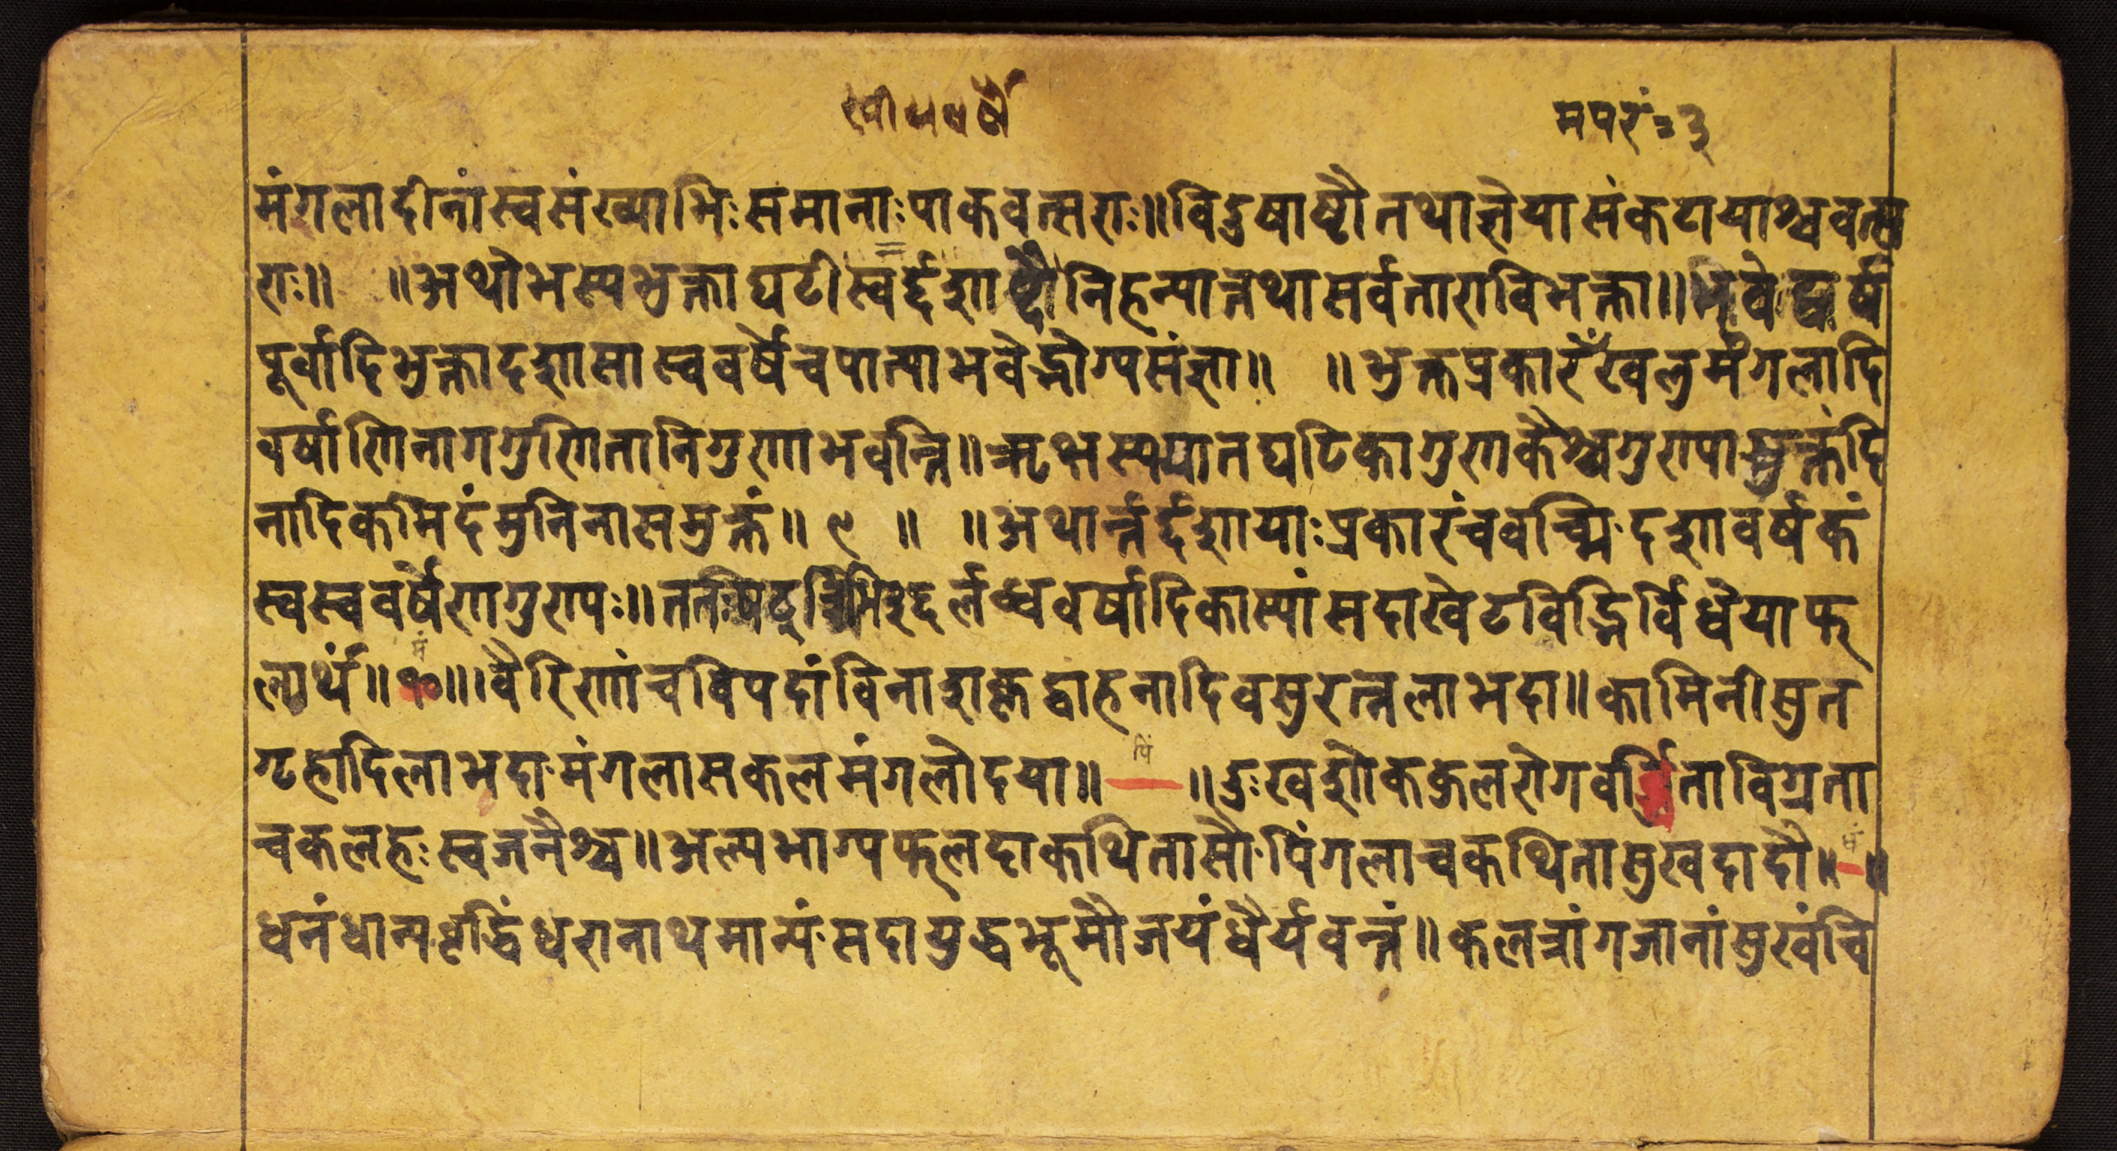 मपरं=३
मंगलादीनांस्वसंख्याभिःसमानाःपाकवत्सराः॥विदुषाष्टौतथाज्ञेयासंकटायाश्चवत्स
राः॥ ॥अथोभस्यभुक्ताघटीस्वर्द्दशा निहन्यात्तथासर्वताराविभक्ता॥
पूर्वादिभुक्तादशासास्ववर्षैचपात्याभवेद्भोग्यसंज्ञा॥ ॥भुक्तप्रकारँखलुमंगलादि
वर्षाणिनागगुणितानिगुणाभवन्ति॥ऋक्षस्ययातघटिकागुणकैश्चगुणपाभुक्तंदि
नादिकमिदंमुनिनासमुक्तं॥९॥ ॥अथार्न्तर्द्दशायाःप्रकारंचवच्मिदशावर्षकं
स्वस्ववर्षैणगुणपः॥ र्लब्धवर्षादिकास्यांसदाखेटविद्भिर्विधेयाफ
लार्थं॥१०॥वैरिणांचविपदांविनाशकृद्वाहनादिवसुरत्नलाभदा॥कामिनीसुत
गृहादिलाभदामंगलासकलमंगलोदया॥ पिं ॥दुःखशोककुलरोगवर्द्धिताविग्रता
चकलहःस्वजनैश्च॥अल्पभाग्यफलदाकथितासौपिंगलाचकथितासुखदादौ॥ ॥
धनंधान्यवृद्धिंधरानाथमान्यंसदायुद्धभूमौजयंधैर्यवन्तं॥कलत्रांगजानांसुखंचि